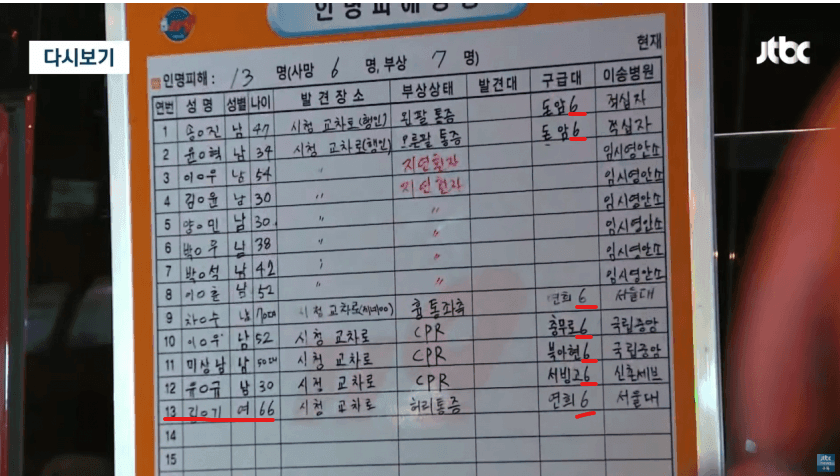 인명피해현황
다시보기
jtbc
인명피해 : 13 명(사망 6 명, 부상 7 명) 현재
연번 성명 성별 나이 발견장소 부상상태 발견대 구급대 이송병원
1 송○진 남 47 시청 교차로(행인) 왼팔 통증 돈암6 적십자
2 윤○혁 남 34 시청 교차로(행인) 오른팔 통증 돈암6 적십자
3 이○우 남 54 〃 지연환자 임시영안소
4 김○윤 남 30 〃 지연환자 임시영안소
5 양○민 남 30 〃 〃 임시영안소
6 박○우 남 38 〃 〃 임시영안소
7 박○석 남 42 〃 〃 임시영안소
8 이○훈 남 52 〃 〃 임시영안소
9 차○수 남 70대 시청 교차로 흉통좌측 연희6 서울대
10 이○우 남 52 시청 교차로 CPR 충무로6 국립중앙
11 미상남 남 50대 시청 교차로 CPR 북아현6 국립중앙
12 유○규 남 30 시청 교차로 CPR 서빙고6 신촌세브
13 김○기 여 66 시청 교차로 허리통증 연희6 서울대
14
15
jtbc